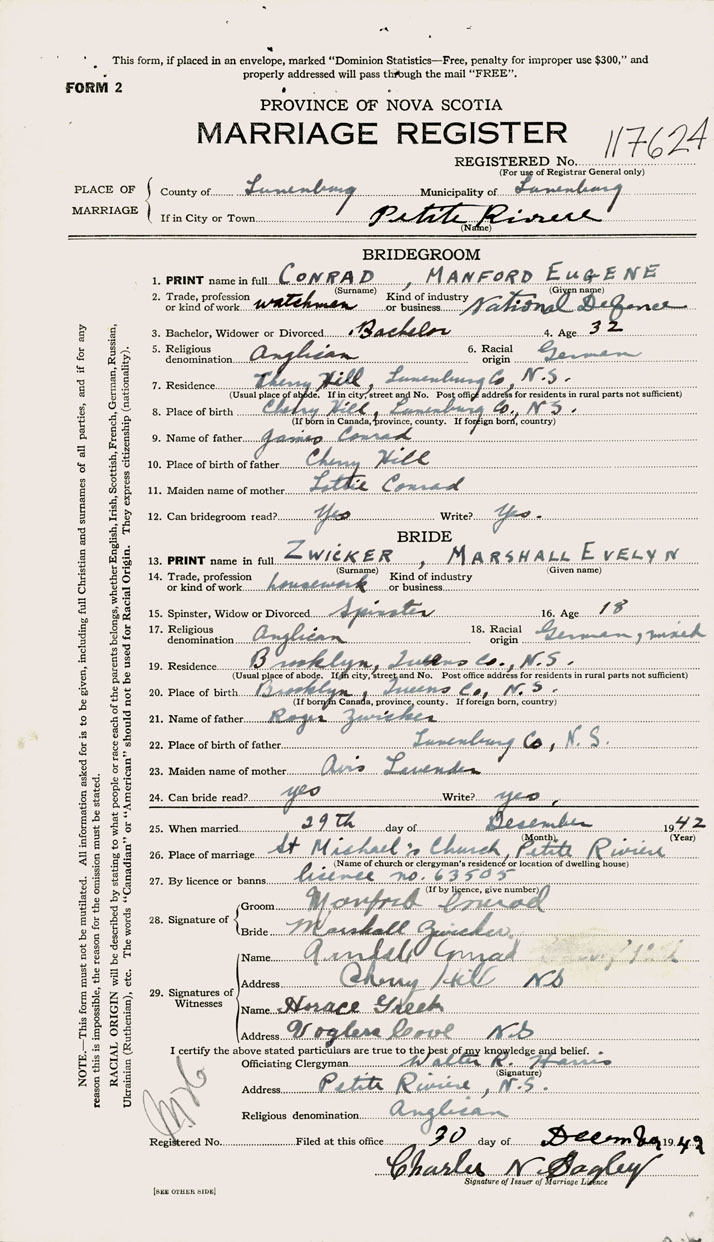 This form, if placed in an envelope, marked "Dominion Statistics—Free, penalty for improper use $300," and
properly addressed will pass through the mail "FREE".
FORM 2
PROVINCE OF NOVA SCOTIA
MARRIAGE REGISTER
117624
REGISTERED No.
(For use of Registrar General only)
PLACE OF MARRIAGE
County of Lunenburg Municipality of Lunenburg
If in City or Town Petite Riviere
(Name)
BRIDEGROOM
1. PRINT name in full CONRAD, MANFORD EUGENE
(Surname) (Given name)
2. Trade, profession or kind of work watchman Kind of industry or business National Defence
3. Bachelor, Widower or Divorced Bachelor 4. Age 32
5. Religious denomination Anglican 6. Racial origin German
7. Residence Cherry Hill, Lunenburg Co, N.S.
(Usual place of abode. If in city, street and No. Post office address for residents in rural parts not sufficient)
8. Place of birth Cherry Hill, Lunenburg Co., N.S.
(If born in Canada, province, county. If foreign born, country)
9. Name of father James Conrad
10. Place of birth of father Cherry Hill
11. Maiden name of mother Lottie Conrad
12. Can bridegroom read? Yes Write? Yes.
BRIDE
13. PRINT name in full ZWICKER, MARSHALL EVELYN
(Surname) (Given name)
14. Trade, profession or kind of work housework Kind of industry or business
15. Spinster, Widow or Divorced Spinster 16. Age 18
17. Religious denomination Anglican 18. Racial origin German, mixed
19. Residence Brooklyn, Queens Co., N.S.
(Usual place of abode. If in city, street and No. Post office address for residents in rural parts not sufficient)
20. Place of birth Brooklyn, Queens Co, N.S.
(If born in Canada, province, county. If foreign born, country)
21. Name of father Roger Zwicker
22. Place of birth of father Lunenburg Co, N.S.
23. Maiden name of mother Avis Lavender
24. Can bride read? yes Write? yes,
25. When married 29th day of Desember 1942
(Month) (Year)
26. Place of marriage St Michael's Church, Petite Riviere
(Name of church or clergyman's residence or location of dwelling house)
27. By licence or banns licence no. 63505
(If by licence, give number)
28. Signature of
Groom Manford Conrad
Bride Marshall Zwicker
29. Signatures of Witnesses
Name Conrad
Address Cherry Hill NS
Name Horace
Address Voglers Cove NS
I certify the above stated particulars are true to the best of my knowledge and belief.
Officiating Clergyman Walter R. Harris
(Signature)
Address Petite Riviere, N.S.
Religious denomination Anglican
Registered No. Filed at this office 30 day of December 1942
Charles N.
Signature of Issuer of Marriage Licence
[SEE OTHER SIDE]
NOTE.—This form must not be mutilated. All information asked for is to be given, including full Christian and surnames of all parties, and if for any
reason this is impossible, the reason for the omission must be stated.
RACIAL ORIGIN will be described by stating to what people or race each of the parents belongs, whether English, Irish, Scottish, French, German, Russian,
Ukrainian (Ruthenian), etc. The words "Canadian" or "American" should not be used for Racial Origin. They express citizenship (nationality).